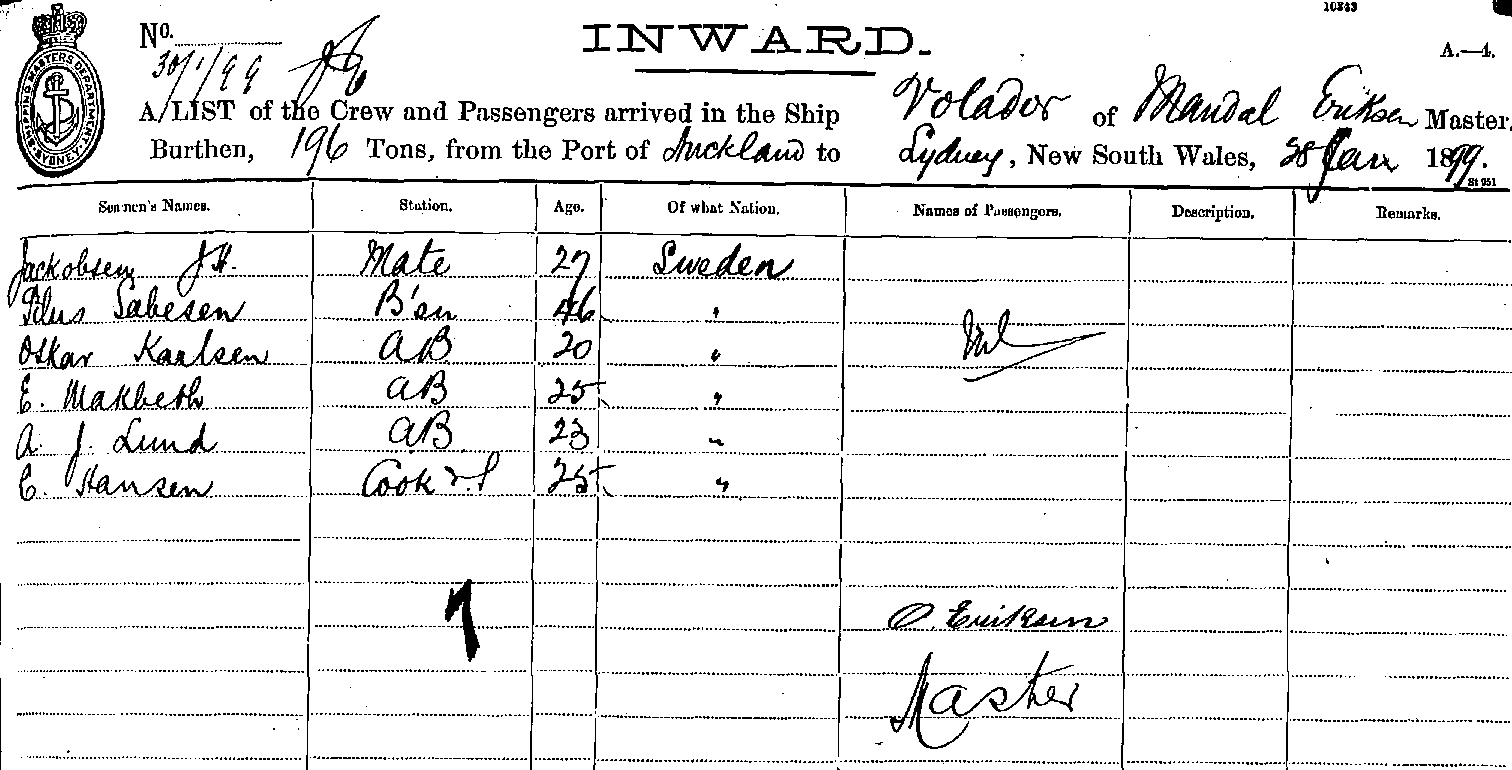 10343
No. INWARD. A.—4.
30/1/99
A/LIST of the Crew and Passengers arrived in the Ship Volador of Mandal Eriksen Master,
Burthen, 196 Tons, from the Port of Auckland to Sydney, New South Wales, 28 Jan 1899.
St 951
SHIPPING MASTERS DEPARTMENT SYDNEY
Seamen's Names. Station. Age. Of what Nation. Names of Passengers. Description. Remarks.
Jackobsen J H. Mate 27 Sweden
B'sn 46 "
Oskar Kaalsen AB 20 " Nil
E. Makbeth AB 25 "
A. J. Lund AB 23 "
E. Hansen Cook & S 25 "
7
O. Eriksen
Master